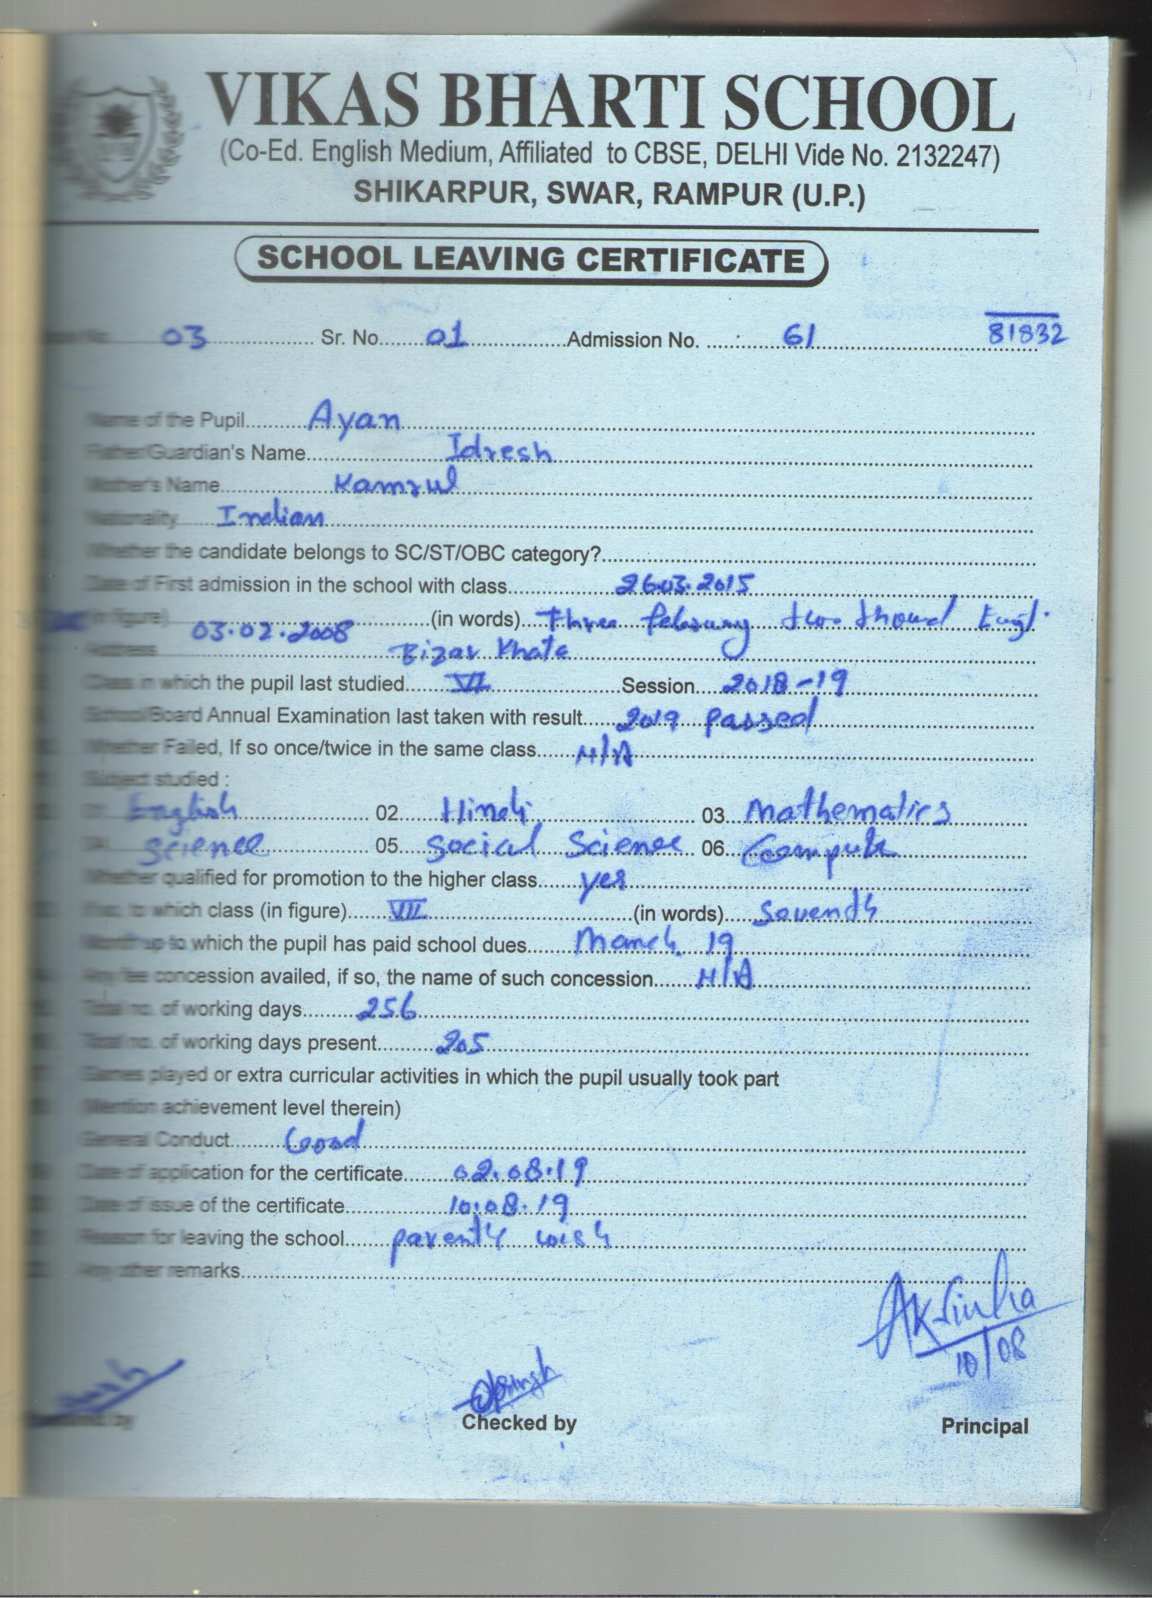 VIKAS BHARTI SCHOOL
(Co-Ed. English Medium, Affiliated to CBSE, DELHI Vide No. 2132247)
SHIKARPUR, SWAR, RAMPUR (U.P.)
SCHOOL LEAVING CERTIFICATE
03 Sr. No. 01 Admission No. : 61 81832
Name of the Pupil Ayan
Father/Guardian's Name Idresh
Mother's Name Kamrul
Nationality Indian
Whether the candidate belongs to SC/ST/OBC category?
Date of First admission in the school with class 26.03.2015
(in figure) 03.02.2008 (in words) Three
Address
Class in which the pupil last studied VI Session 2018-19
School/Board Annual Examination last taken with result 2019 Passed
Whether Failed, If so once/twice in the same class N/A
Subject studied :
English 02 Hindi 03 Mathematics
Science 05 Social Science 06
Whether qualified for promotion to the higher class yes
to which class (in figure) VII (in words)
Month up to which the pupil has paid school dues 19
Any fee concession availed, if so, the name of such concession N/A
Total no. of working days 256
Total no. of working days present 205
Games played or extra curricular activities in which the pupil usually took part
(Mention achievement level therein)
General Conduct Good
Date of application for the certificate 02.08.19
Date of issue of the certificate 10.08.19
Reason for leaving the school
Any other remarks
AKSinha
10/08
by Checked by Principal